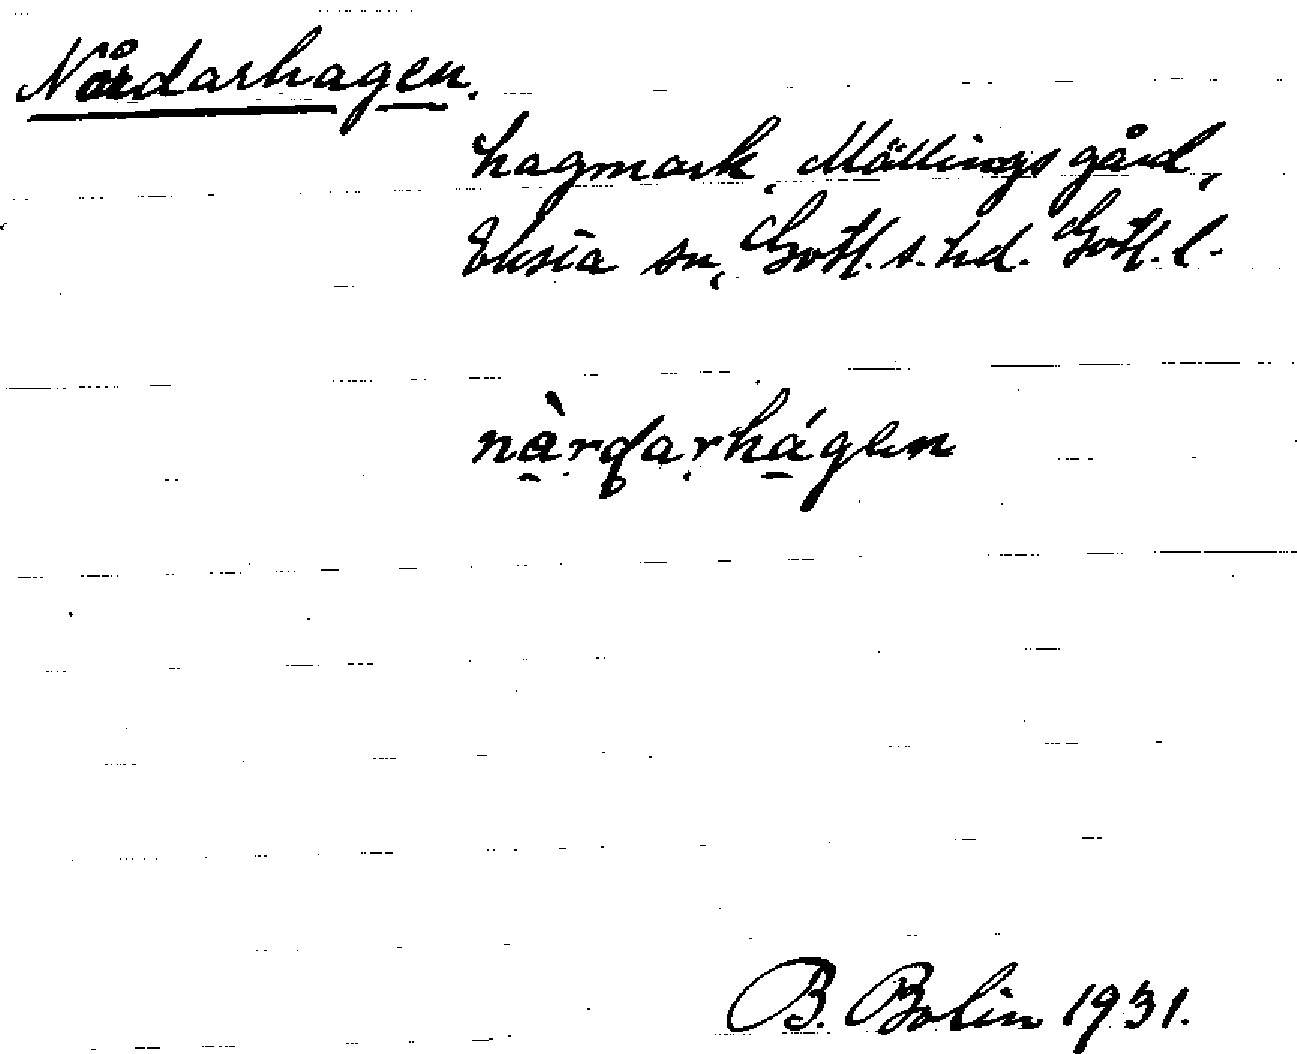 Nårdarhagen.
hagmark, Mällings gård,
Eksta sn, Gotl. s. hd. Gotl. l.
nàrdarhágen
B. Bolin 1931.